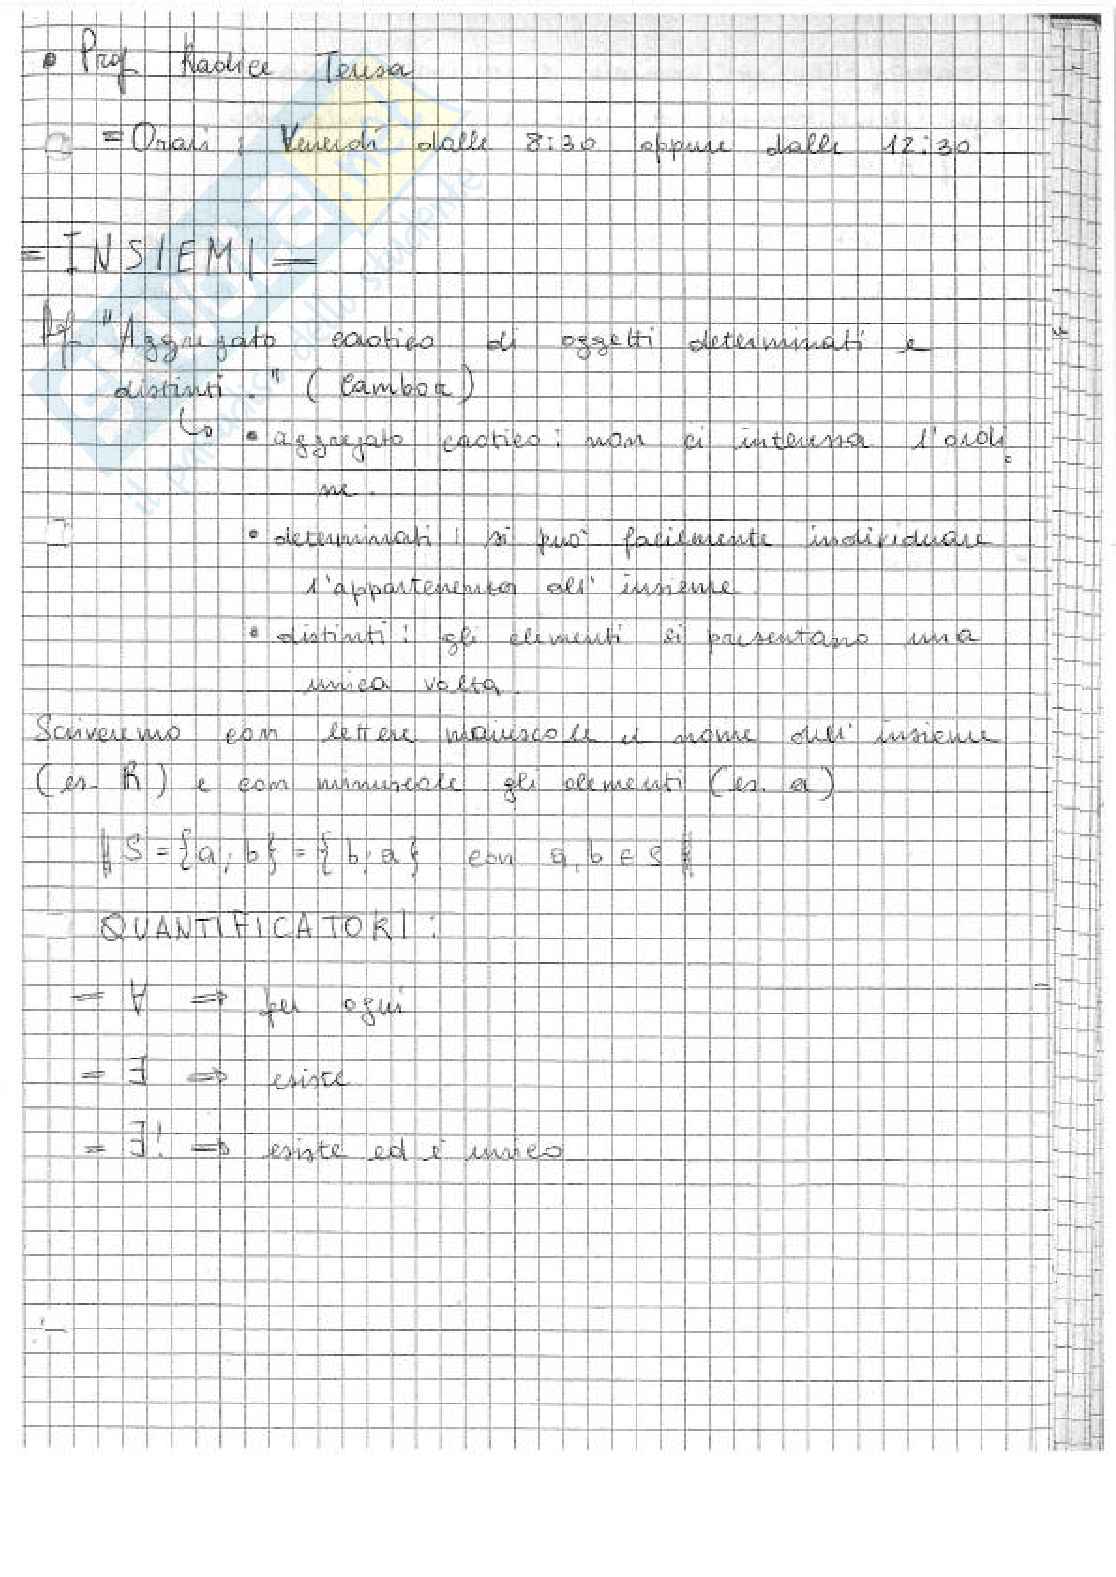 • Prof Radice Teresa
= Orari : Venerdì dalle 8:30 oppure dalle 12:30
= INSIEMI =
Def "Aggregato caotico di oggetti determinati e
distinti." (Cambor)
↳ • aggregato caotico: non ci interessa l'ordi
ne.
• determinati: si può facilmente individuare
l'appartenenza all'insieme
• distinti: gli elementi si presentano una
unica volta.
Scriveremo con lettere maiuscole il nome dell'insieme
(es. R) e con minuscole gli elementi (es. a)
S = {a; b} = {b; a} con a, b ∈ S
QUANTIFICATORI:
= ∀ ⇒ per ogni
= ∃ ⇒ esiste
= ∃! ⇒ esiste ed è unico